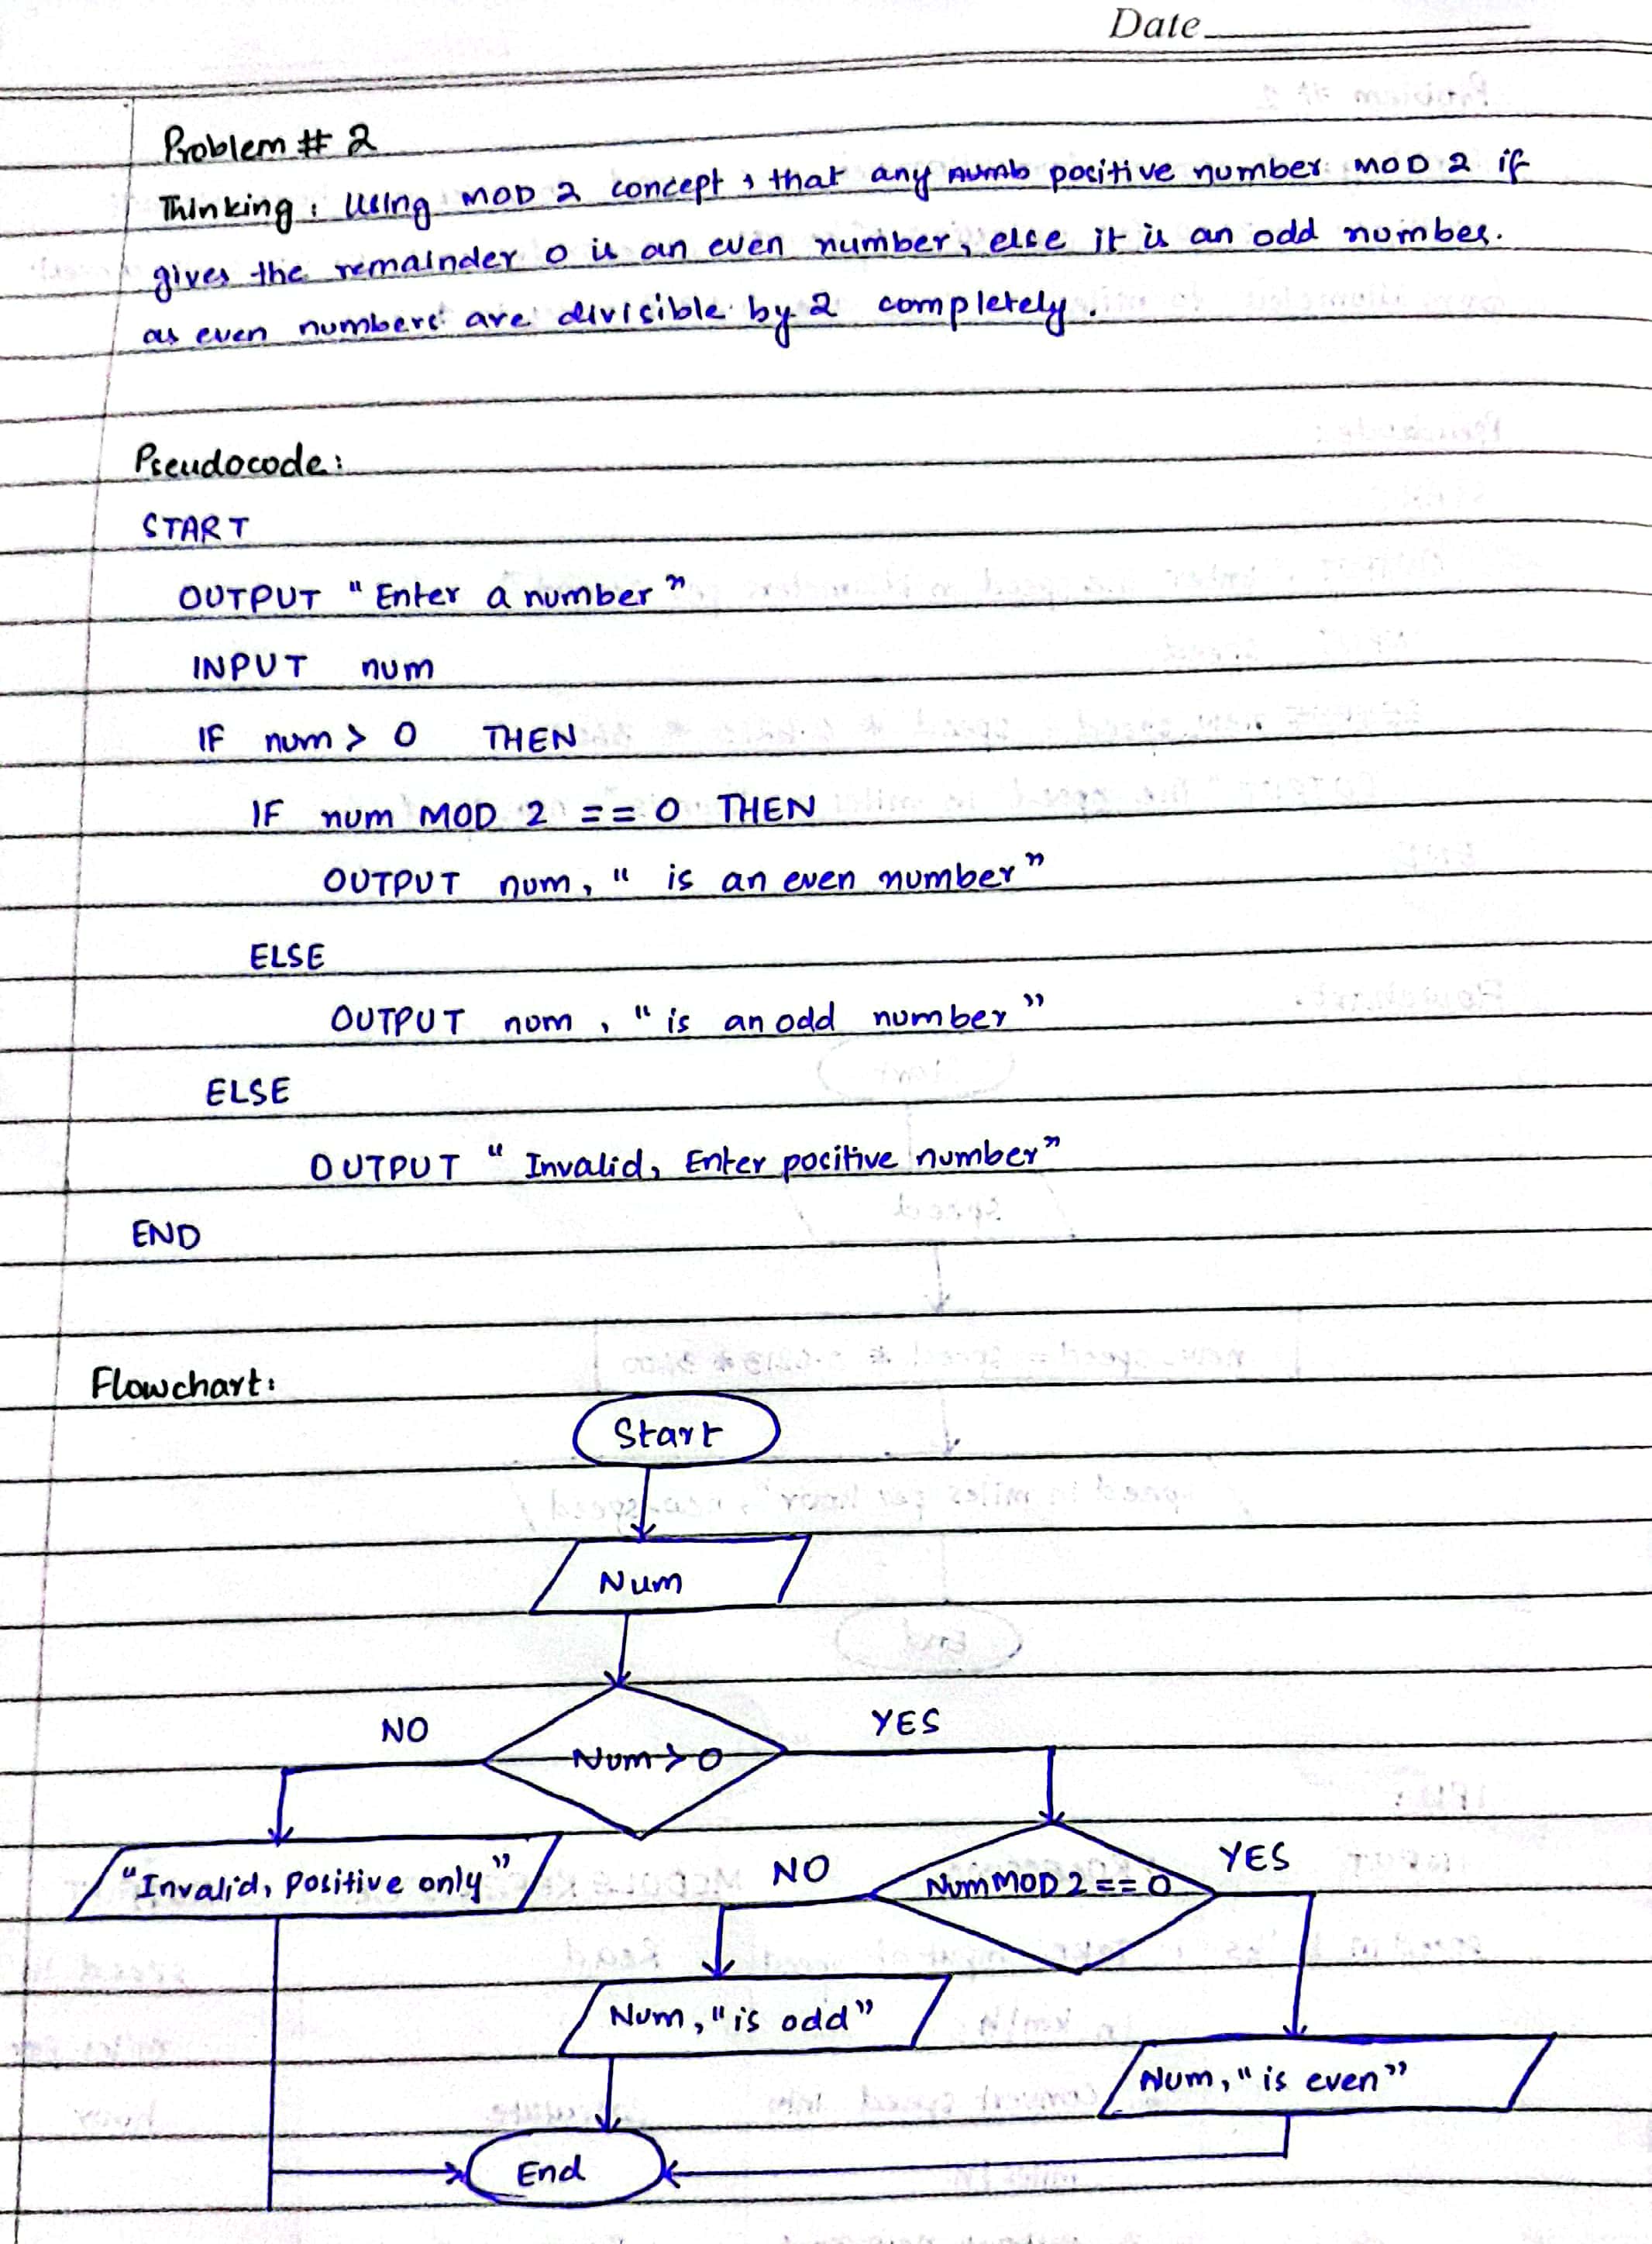 Date
Problem # 2
Thinking: Using MOD 2 concept, that any numb positive number MOD 2 if
gives the remainder 0 is an even number, else it is an odd number.
as even numbers are divisible by 2 completely.
Pseudocode:
START
OUTPUT "Enter a number"
INPUT num
IF num > 0 THEN
IF num MOD 2 == 0 THEN
OUTPUT num, " is an even number"
ELSE
OUTPUT num, "is an odd number"
ELSE
OUTPUT "Invalid, Enter positive number"
END
Flowchart:
Start
Num
NO
Num > 0
YES
"Invalid, Positive only"
NO
Num MOD 2 == 0
YES
Num, "is odd"
Num, "is even"
End